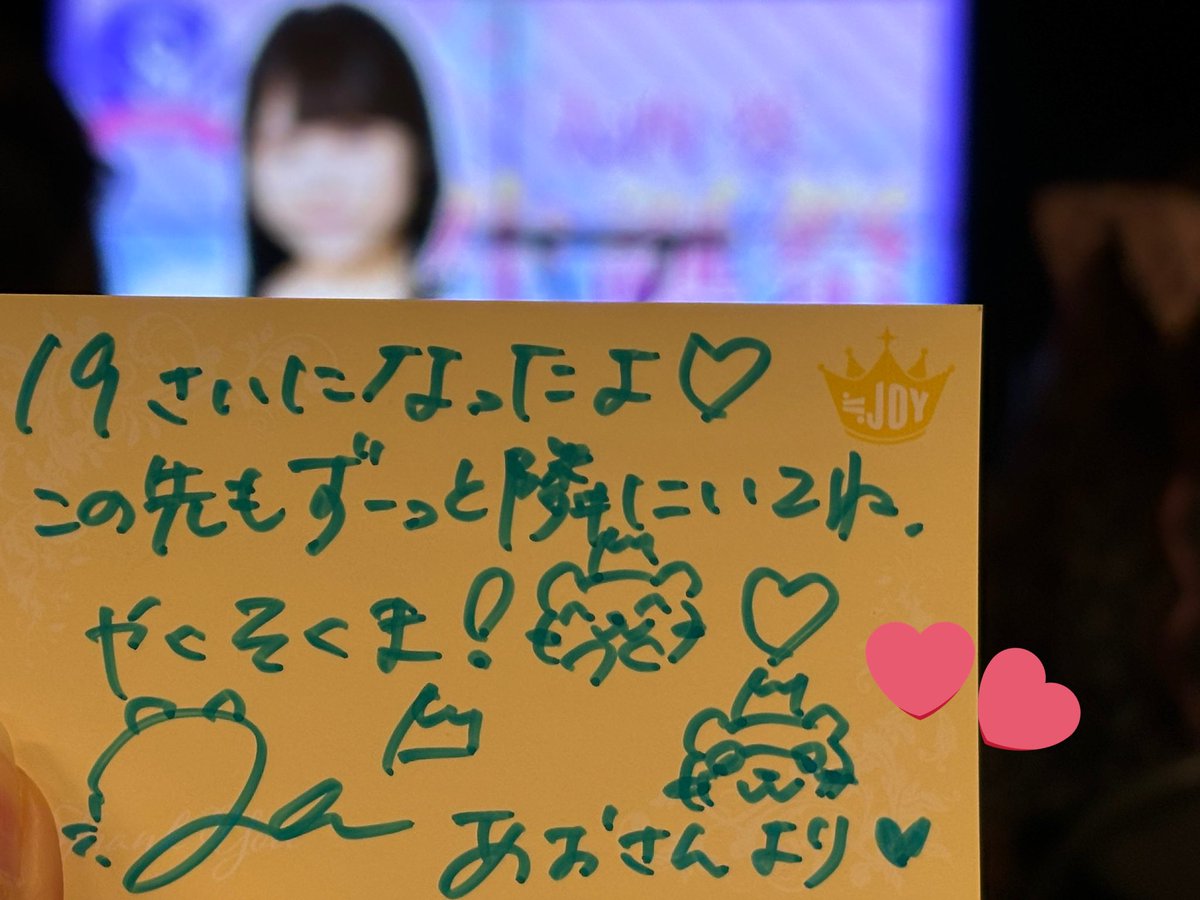 19さいになったよ♡
≒JOY
この先もずーっと隣にいてね.
やくそくま!♡
あおさんより♥